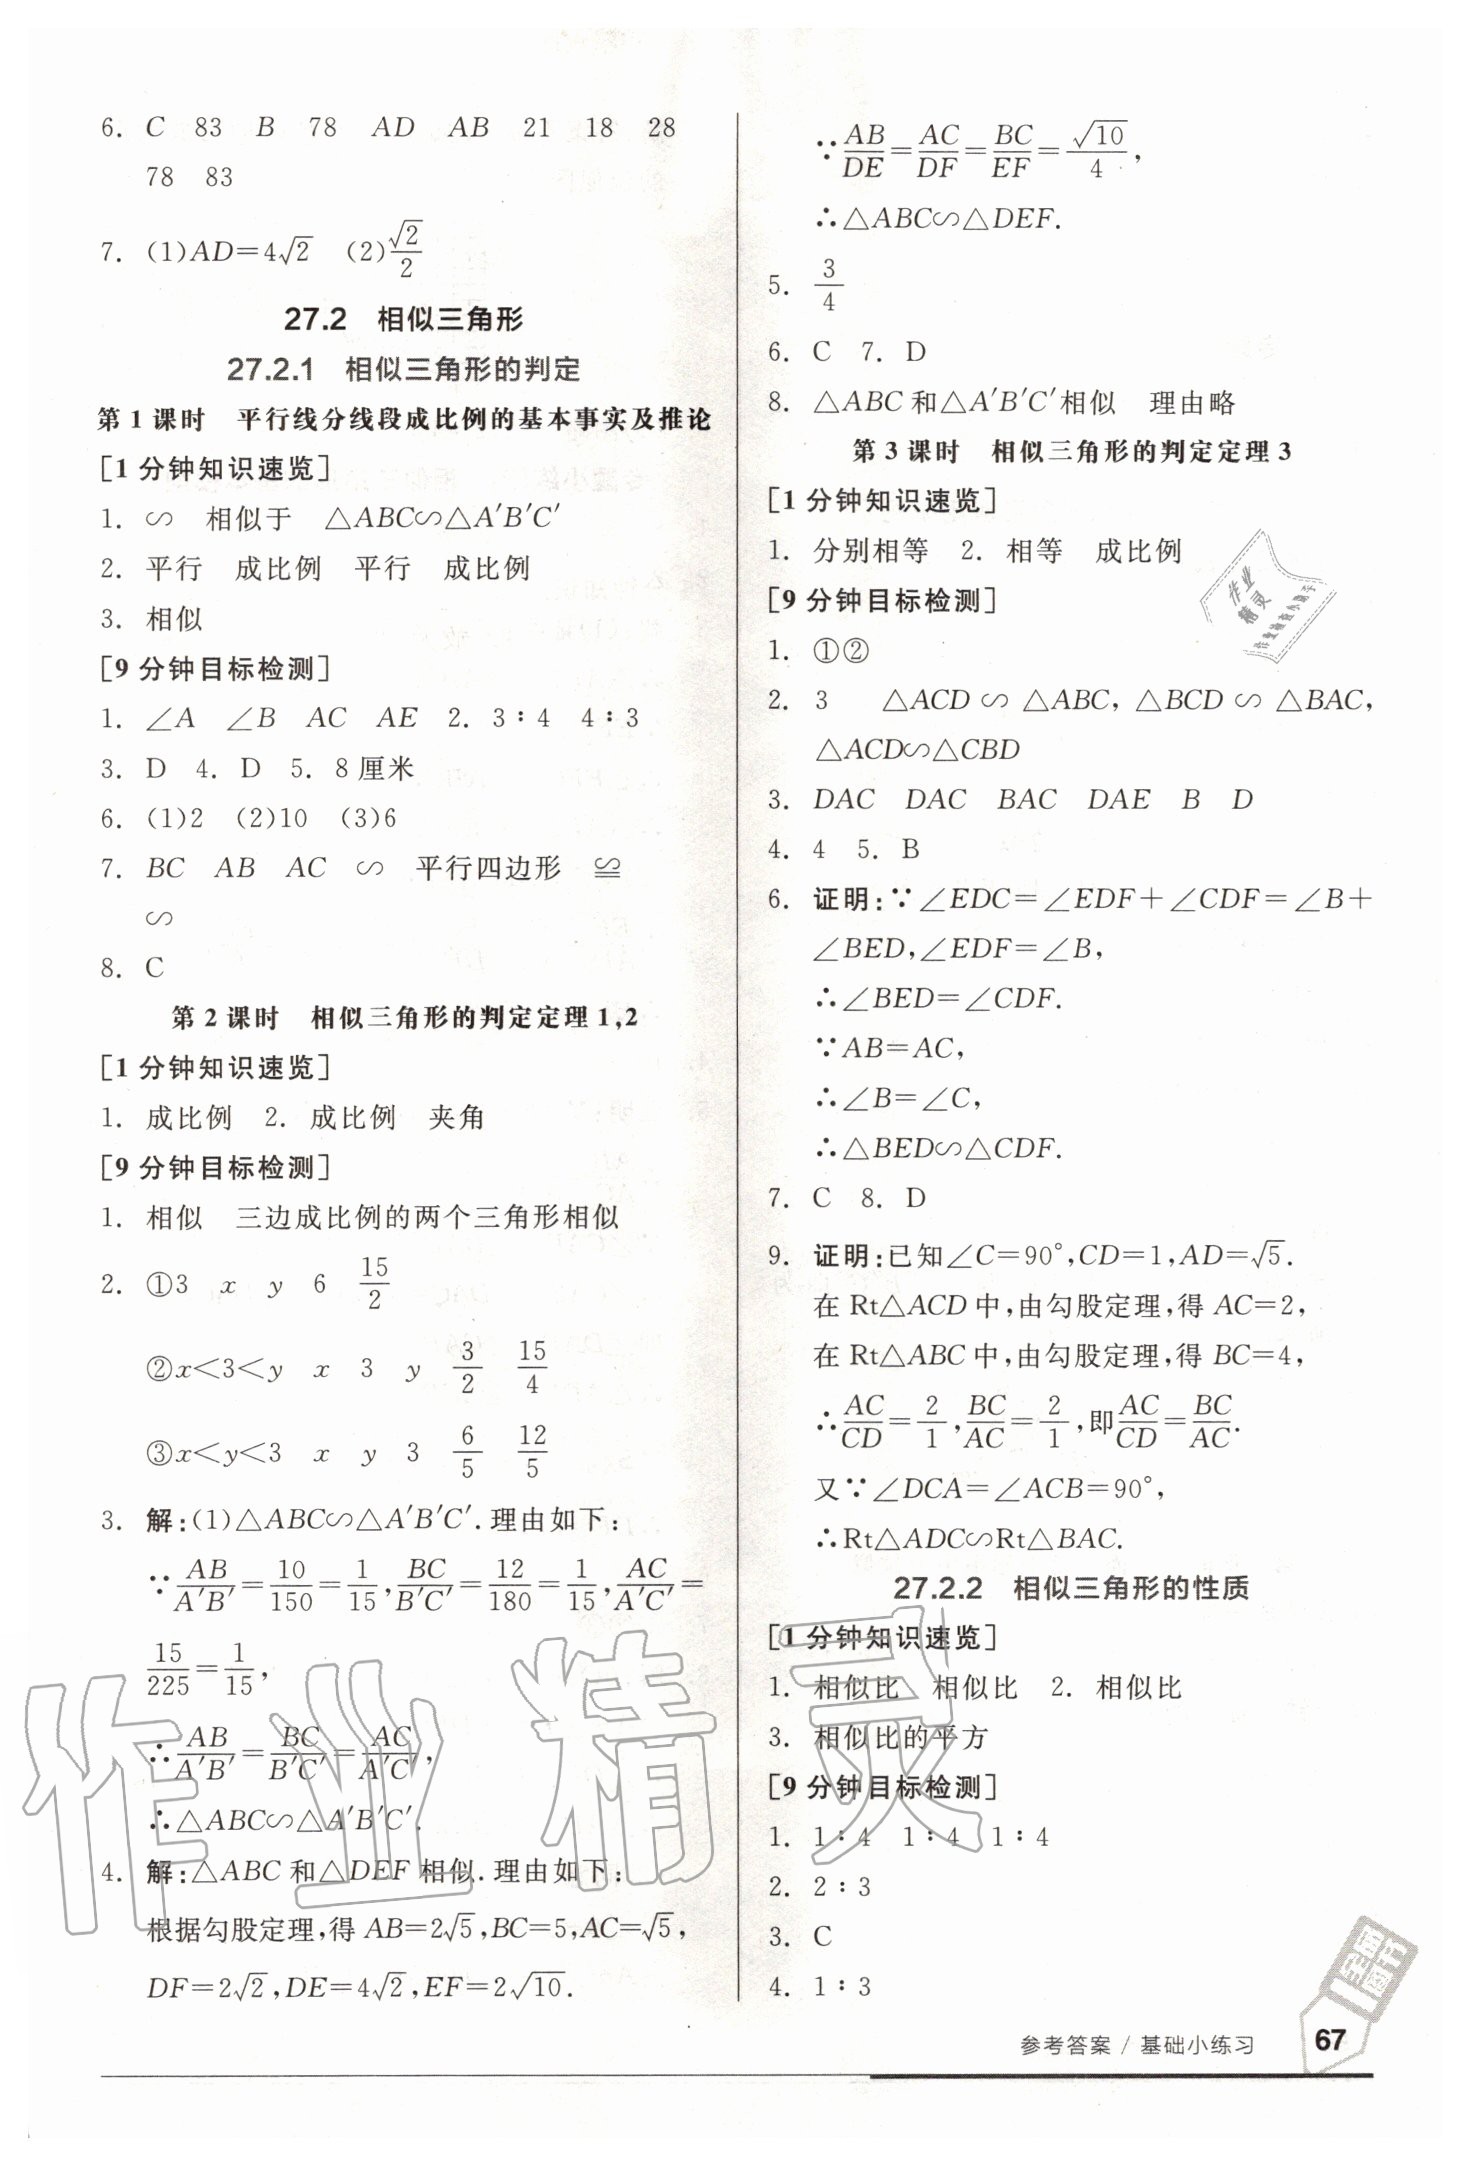 6. C 83 B 78 AD AB 21 18 28
78 83
7. (1)AD=4√2 (2)√2/2
27.2 相似三角形
27.2.1 相似三角形的判定
第1课时 平行线分线段成比例的基本事实及推论
[1分钟知识速览]
1. ∽ 相似于 △ABC∽△A′B′C′
2. 平行 成比例 平行 成比例
3. 相似
[9分钟目标检测]
1. ∠A ∠B AC AE 2. 3∶4 4∶3
3. D 4. D 5. 8厘米
6. (1)2 (2)10 (3)6
7. BC AB AC ∽ 平行四边形 ≌
∽
8. C
第2课时 相似三角形的判定定理1,2
[1分钟知识速览]
1. 成比例 2. 成比例 夹角
[9分钟目标检测]
1. 相似 三边成比例的两个三角形相似
2. ①3 x y 6 15/2
②x<3<y x 3 y 3/2 15/4
③x<y<3 x y 3 6/5 12/5
3. 解:(1)△ABC∽△A′B′C′.理由如下:
∵AB/A′B′=10/150=1/15,BC/B′C′=12/180=1/15,AC/A′C′=
15/225=1/15,
∴AB/A′B′=BC/B′C′=AC/A′C′,
∴△ABC∽△A′B′C′.
4. 解:△ABC和△DEF相似.理由如下:
根据勾股定理,得AB=2√5,BC=5,AC=√5,
DF=2√2,DE=4√2,EF=2√10.
∵AB/DE=AC/DF=BC/EF=√10/4,
∴△ABC∽△DEF.
5. 3/4
6. C 7. D
8. △ABC和△A′B′C′相似 理由略
第3课时 相似三角形的判定定理3
[1分钟知识速览]
1. 分别相等 2. 相等 成比例
[9分钟目标检测]
1. ①②
2. 3 △ACD∽△ABC,△BCD∽△BAC,
△ACD∽△CBD
3. DAC DAC BAC DAE B D
4. 4 5. B
6. 证明:∵∠EDC=∠EDF+∠CDF=∠B+
∠BED,∠EDF=∠B,
∴∠BED=∠CDF.
∵AB=AC,
∴∠B=∠C,
∴△BED∽△CDF.
7. C 8. D
9. 证明:已知∠C=90°,CD=1,AD=√5.
在Rt△ACD中,由勾股定理,得AC=2,
在Rt△ABC中,由勾股定理,得BC=4,
∴AC/CD=2/1,BC/AC=2/1,即AC/CD=BC/AC.
又∵∠DCA=∠ACB=90°,
∴Rt△ADC∽Rt△BAC.
27.2.2 相似三角形的性质
[1分钟知识速览]
1. 相似比 相似比 2. 相似比
3. 相似比的平方
[9分钟目标检测]
1. 1∶4 1∶4 1∶4
2. 2∶3
3. C
4. 1∶3
参考答案 / 基础小练习 67
作业精灵
作业
精灵